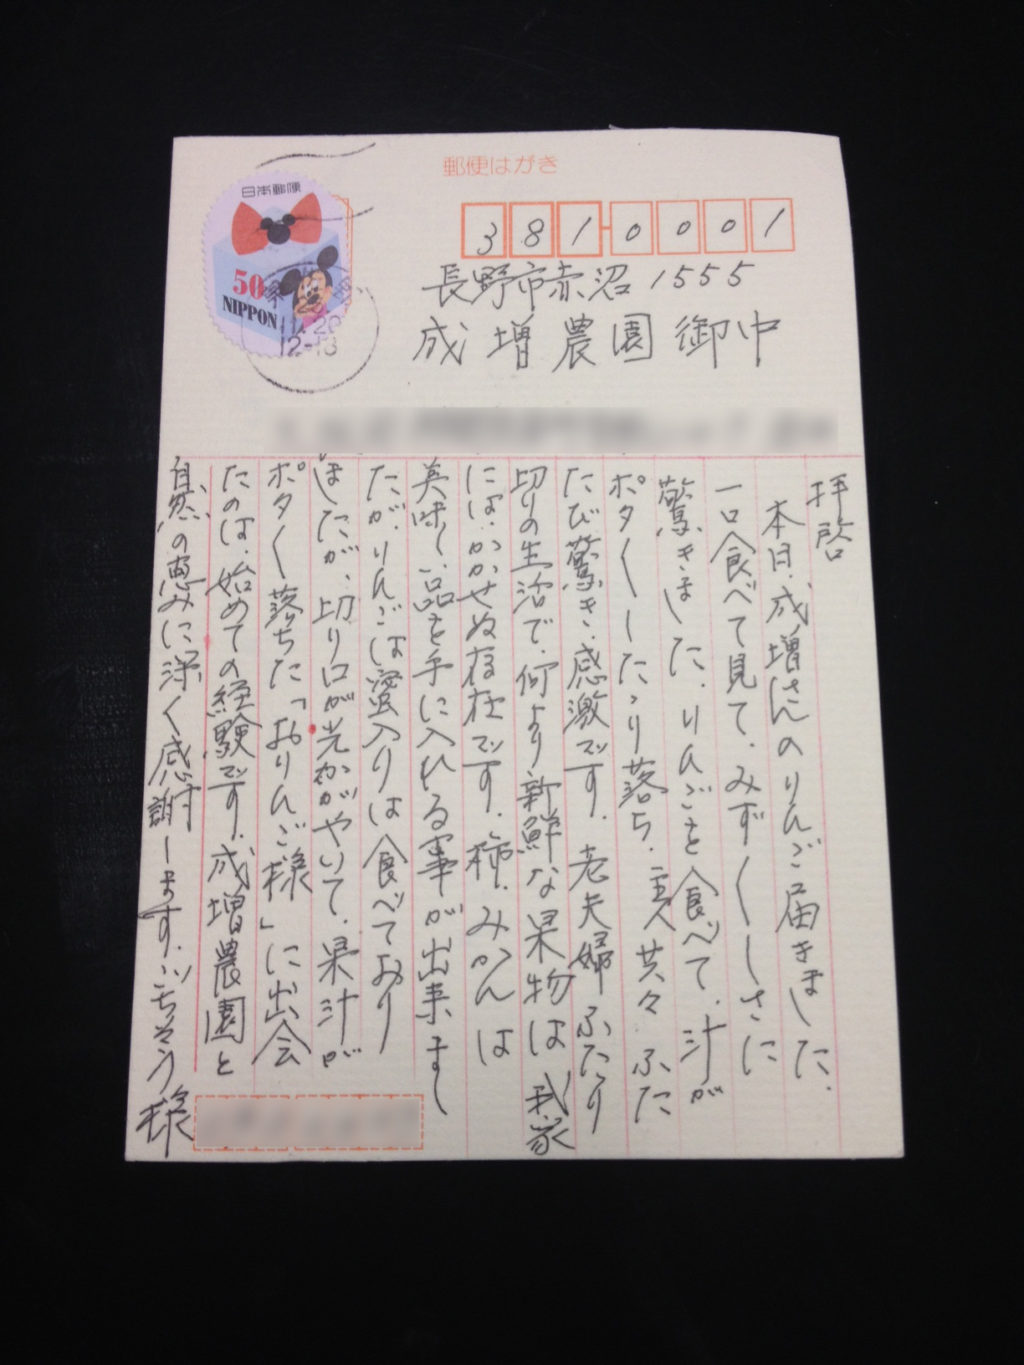 郵便はがき
日本郵便
50
NIPPON
11.20
12-18
381-0001
長野市赤沼1555
成増農園御中
拝啓
本日、成増さんのりんご届きました.
一口食べて見て、みず〱しさに
驚きました、りんごを食べて、汁が
ポタ〱したゝり落ち、主人共々ふた
たび驚き、感激です。老夫婦ふたり
切りの生活で、何より新鮮な果物は我家
には、かかせぬ存在です、柿、みかんは
美味しい品を手に入れる事が出来まし
たが、りんごは蜜入りは食べており
ましたが、切り口が光かがやいて、果汁が
ポタ〱落ちた「おりんご様」に出会
たのは、始めての経験です、成増農園と
自然の恵みに深く感謝します、ごちそう様